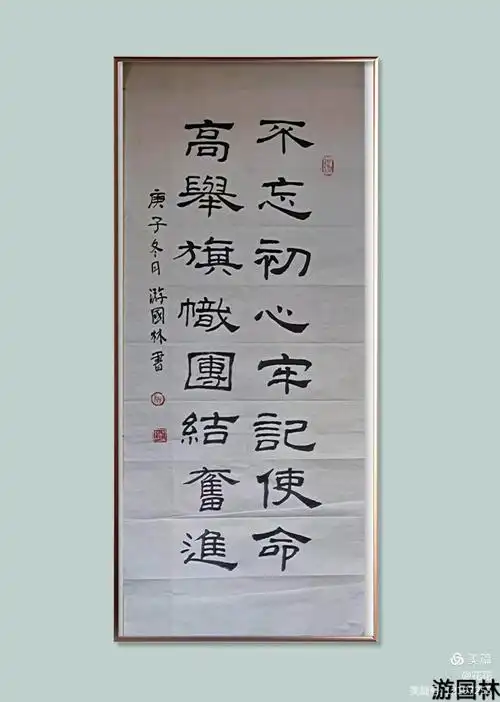 不忘初心牢記使命
高舉旗幟團結奮進
庚子冬日游國林書
美篇
游国林